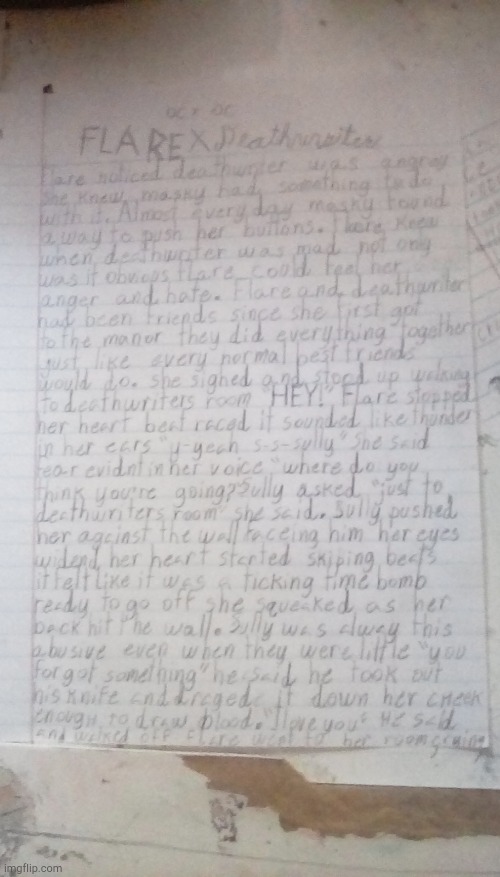 OC x OC
FLARE X Deathwriter
Flare noticed deathwriter was angrey
She knew masky had something to do
with it. Almost every day masky found
a way to push her buttons. Flare knew
when deathwriter was mad not only
was it obvios flare could feel her
anger and hate. Flare and deathwriter
had been friends since she first got
to the manor they did everything together
just like every normal best friends
would do. she signed and stood up walking
to deathwriters room "HEY!" Flare stopped
her heart beat raced it sounded like thunder
in her ears "y-yeah s-s-sully" She said
fear evidnt in her voice "where do you
think you're going? Sully asked "just to
deathwriters room" she said. Sully pushed
her against the wall faceing him her eyes
widend her heart started skiping beats
it felt like it was a ticking time bomb
ready to go off she squeaked as her
back hit the wall. Sully was alway this
abusive even when they were little "you
forgot something" he said he took out
his knife and draged it down her cheek
enough to draw blood. "I love you" He said
and walked off Flare went to her room
imgflip.com